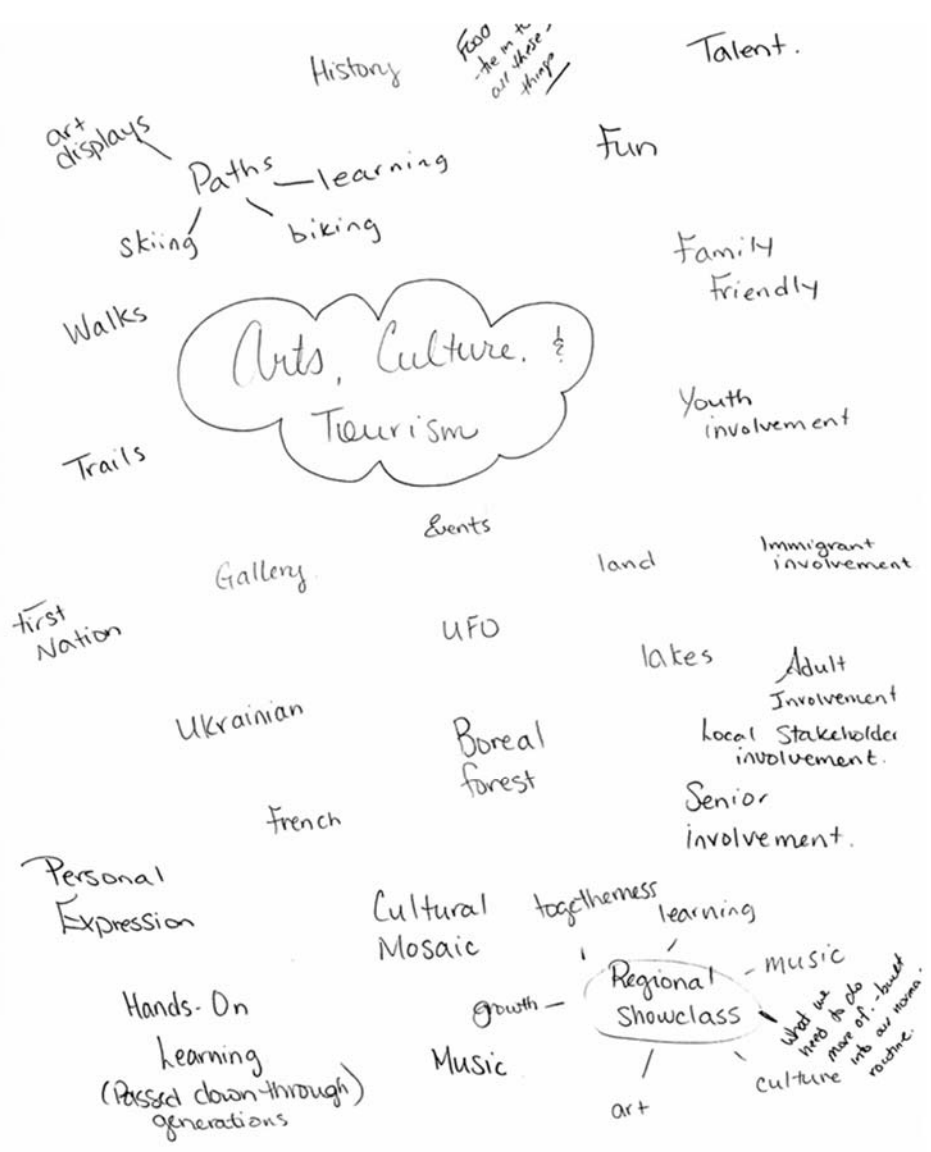 History
Food
- tie in to
all these -
things
Talent.
art
displays
Paths
learning
skiing
biking
Fun
Family
Friendly
Walks
Arts, Culture, &
Tourism
Youth
involvement
Trails
Events
Gallery
land
Immigrant
involvement
First
Nation
UFO
lakes
Adult
Involvement
Ukrainian
Boreal
forest
Local Stakeholder
involvement.
French
Senior
involvement.
Personal
Expression
Cultural
Mosaic
togetherness
learning
music
Regional
Showclass
growth
What we
need to do
more of. - built
into our normal
routine.
culture
art
Hands-On
Learning
(Passed down through)
generations
Music